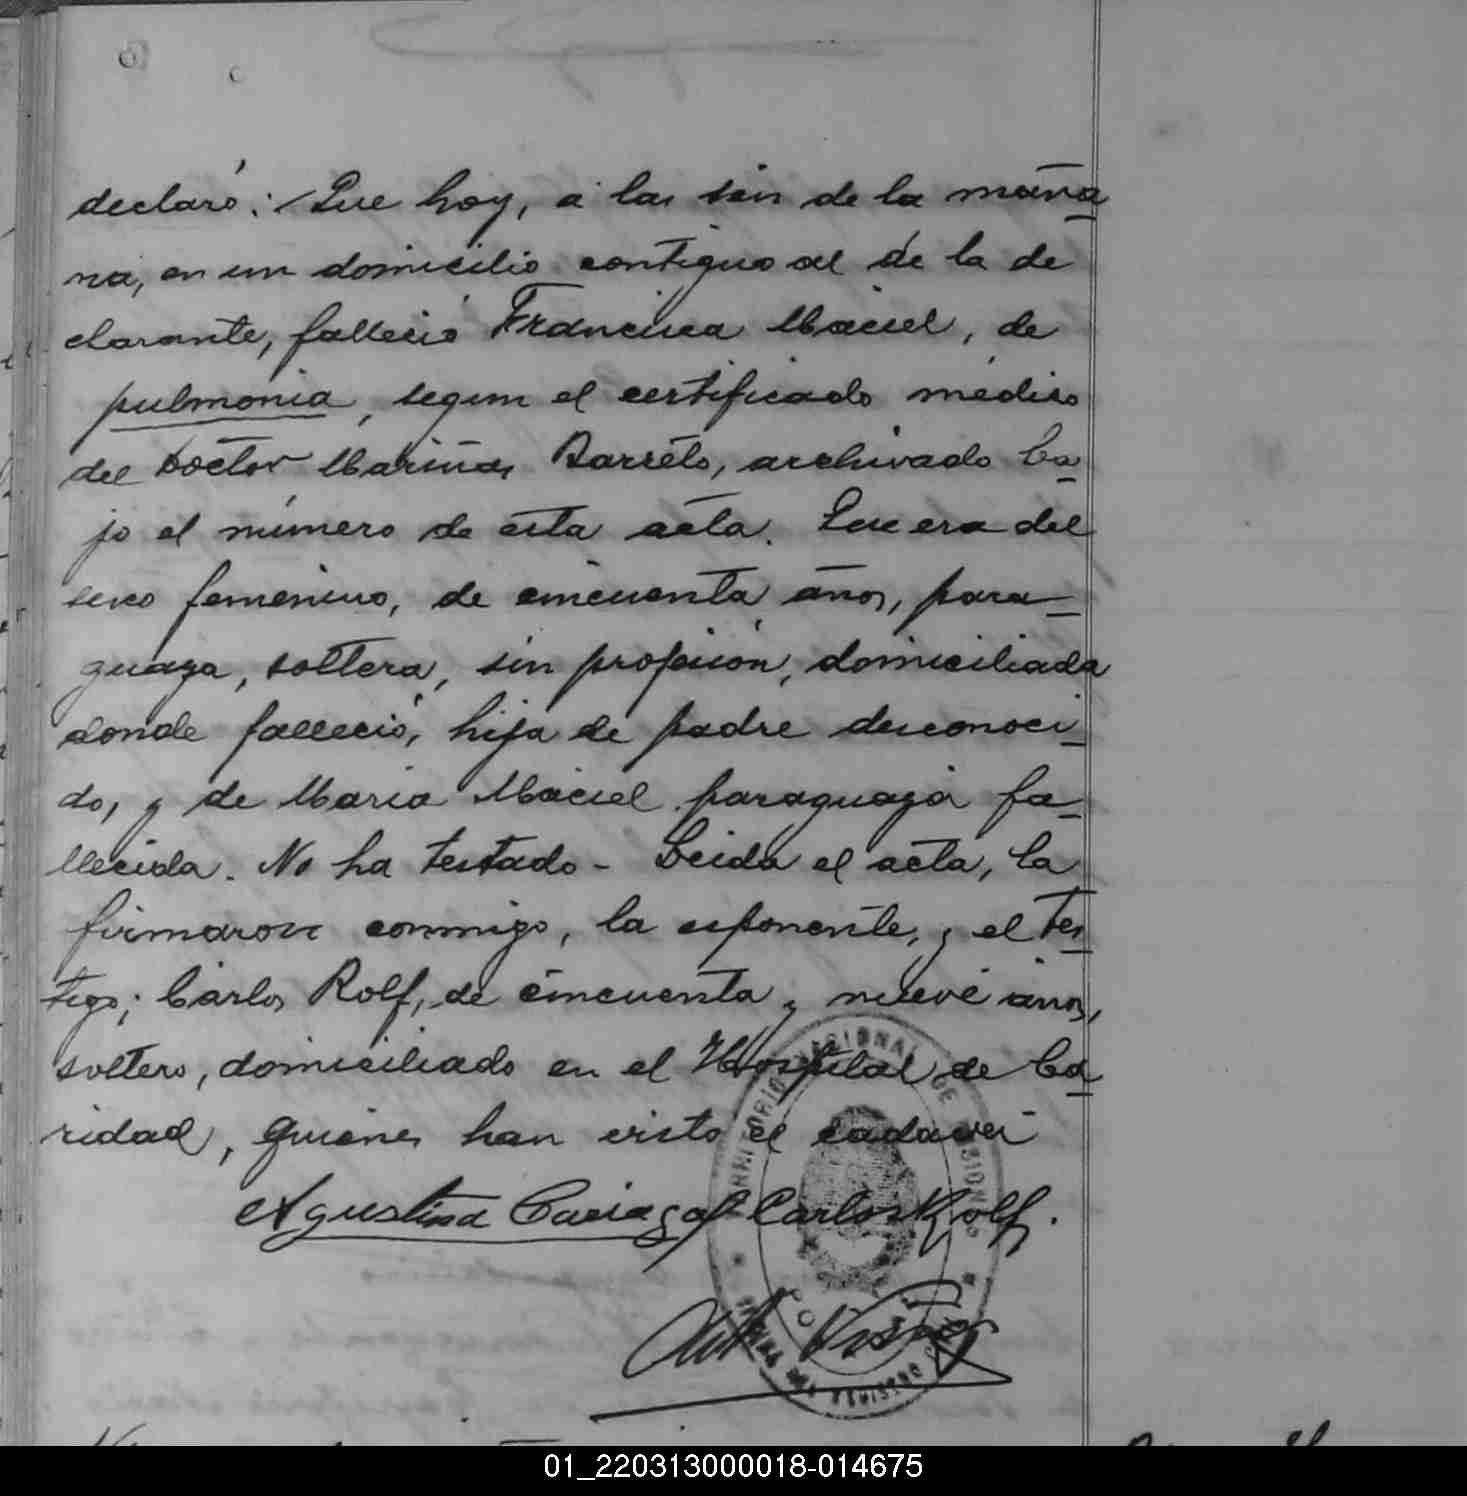 declaró: Que hoy, a las seis de la maña
na, en un domicilio contiguo al de la de
clarante, falleció Francisca Maciel, de
pulmonia, segun el certificado médico
del Doctor Mariño, Barreto, archivado ba-
jo el número de esta acta. Que era del
sexo femenino, de cincuenta años, para-
guaya, soltera, sin profesion, domiciliada
donde falleció, hija de padre desconoci-
do, y de Maria Maciel paraguaya fa-
llecida. No ha testado - Leida el acta, la
firmaron conmigo, la esponente, y el tes-
tigo; Carlos Rolf, de cincuenta y nueve años,
soltero, domiciliado en el Hospital de Ca-
ridad, quienes han visto el cadaver
Agustina Cariaga Carlos Rolf.
NACIONAL DE MISIONES
01_220313000018-014675